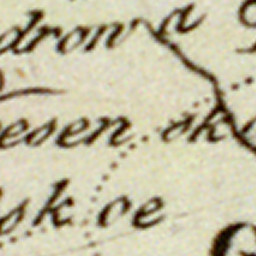 drowa
esen sk
sk oe